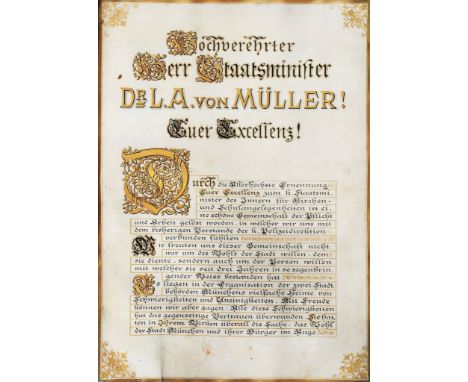 Hochverehrter
Herr Staatsminister
DR. L.A. VON MÜLLER!
Euer Excellenz!
Durch die Allerhöchste Ernennung
Euer Excellenz zum k. Staatsmi-
nister des Innern für Kirchen-
und Schulangelegenheiten ist ei-
ne schöne Gemeinschaft der Pflicht
und Arbeit gelöst worden, in welcher wir uns mit
dem bisherigen Vorstande der k. Polizeidirektion
verbunden fühlten
Wir freuen uns dieser Gemeinschaft nicht
nur um des Wohls der Stadt willen, dem
sie diente, sondern auch um der Person willen
mit welcher sie seit drei Jahren in so segenbrin-
gender Weise bestanden hat
Es liegen in der Organisation der zwei Stadt
behörden Münchens vielfache Keime von
Schwierigkeiten und Uneinigkeiten. Mit Freude
können wir aber sagen: Alle diese Schwierigkeiten
hat das gegenseitige Vertrauen überwunden. Sie hat-
ten in Ihrem Wirken überall die Sache, das Wohl
der Stadt München und ihrer Bürger im Auge